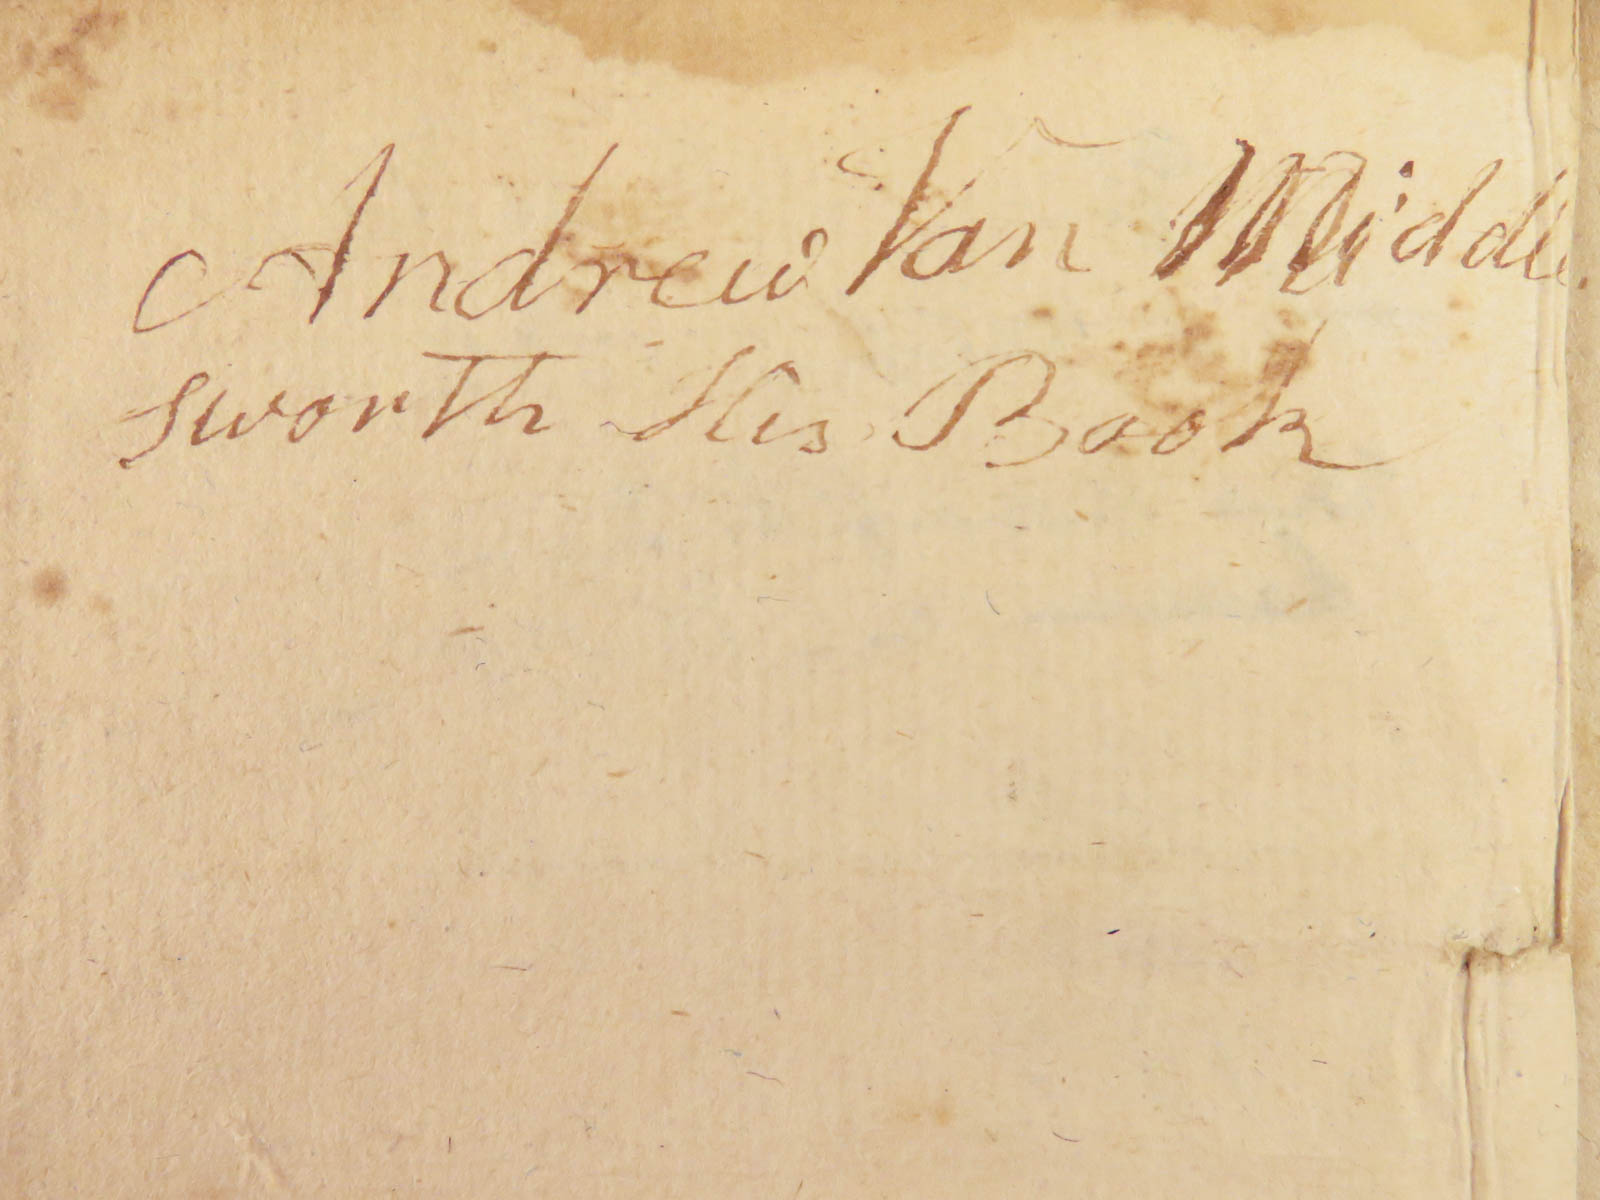 Andrew Van Middle
sworth His Book